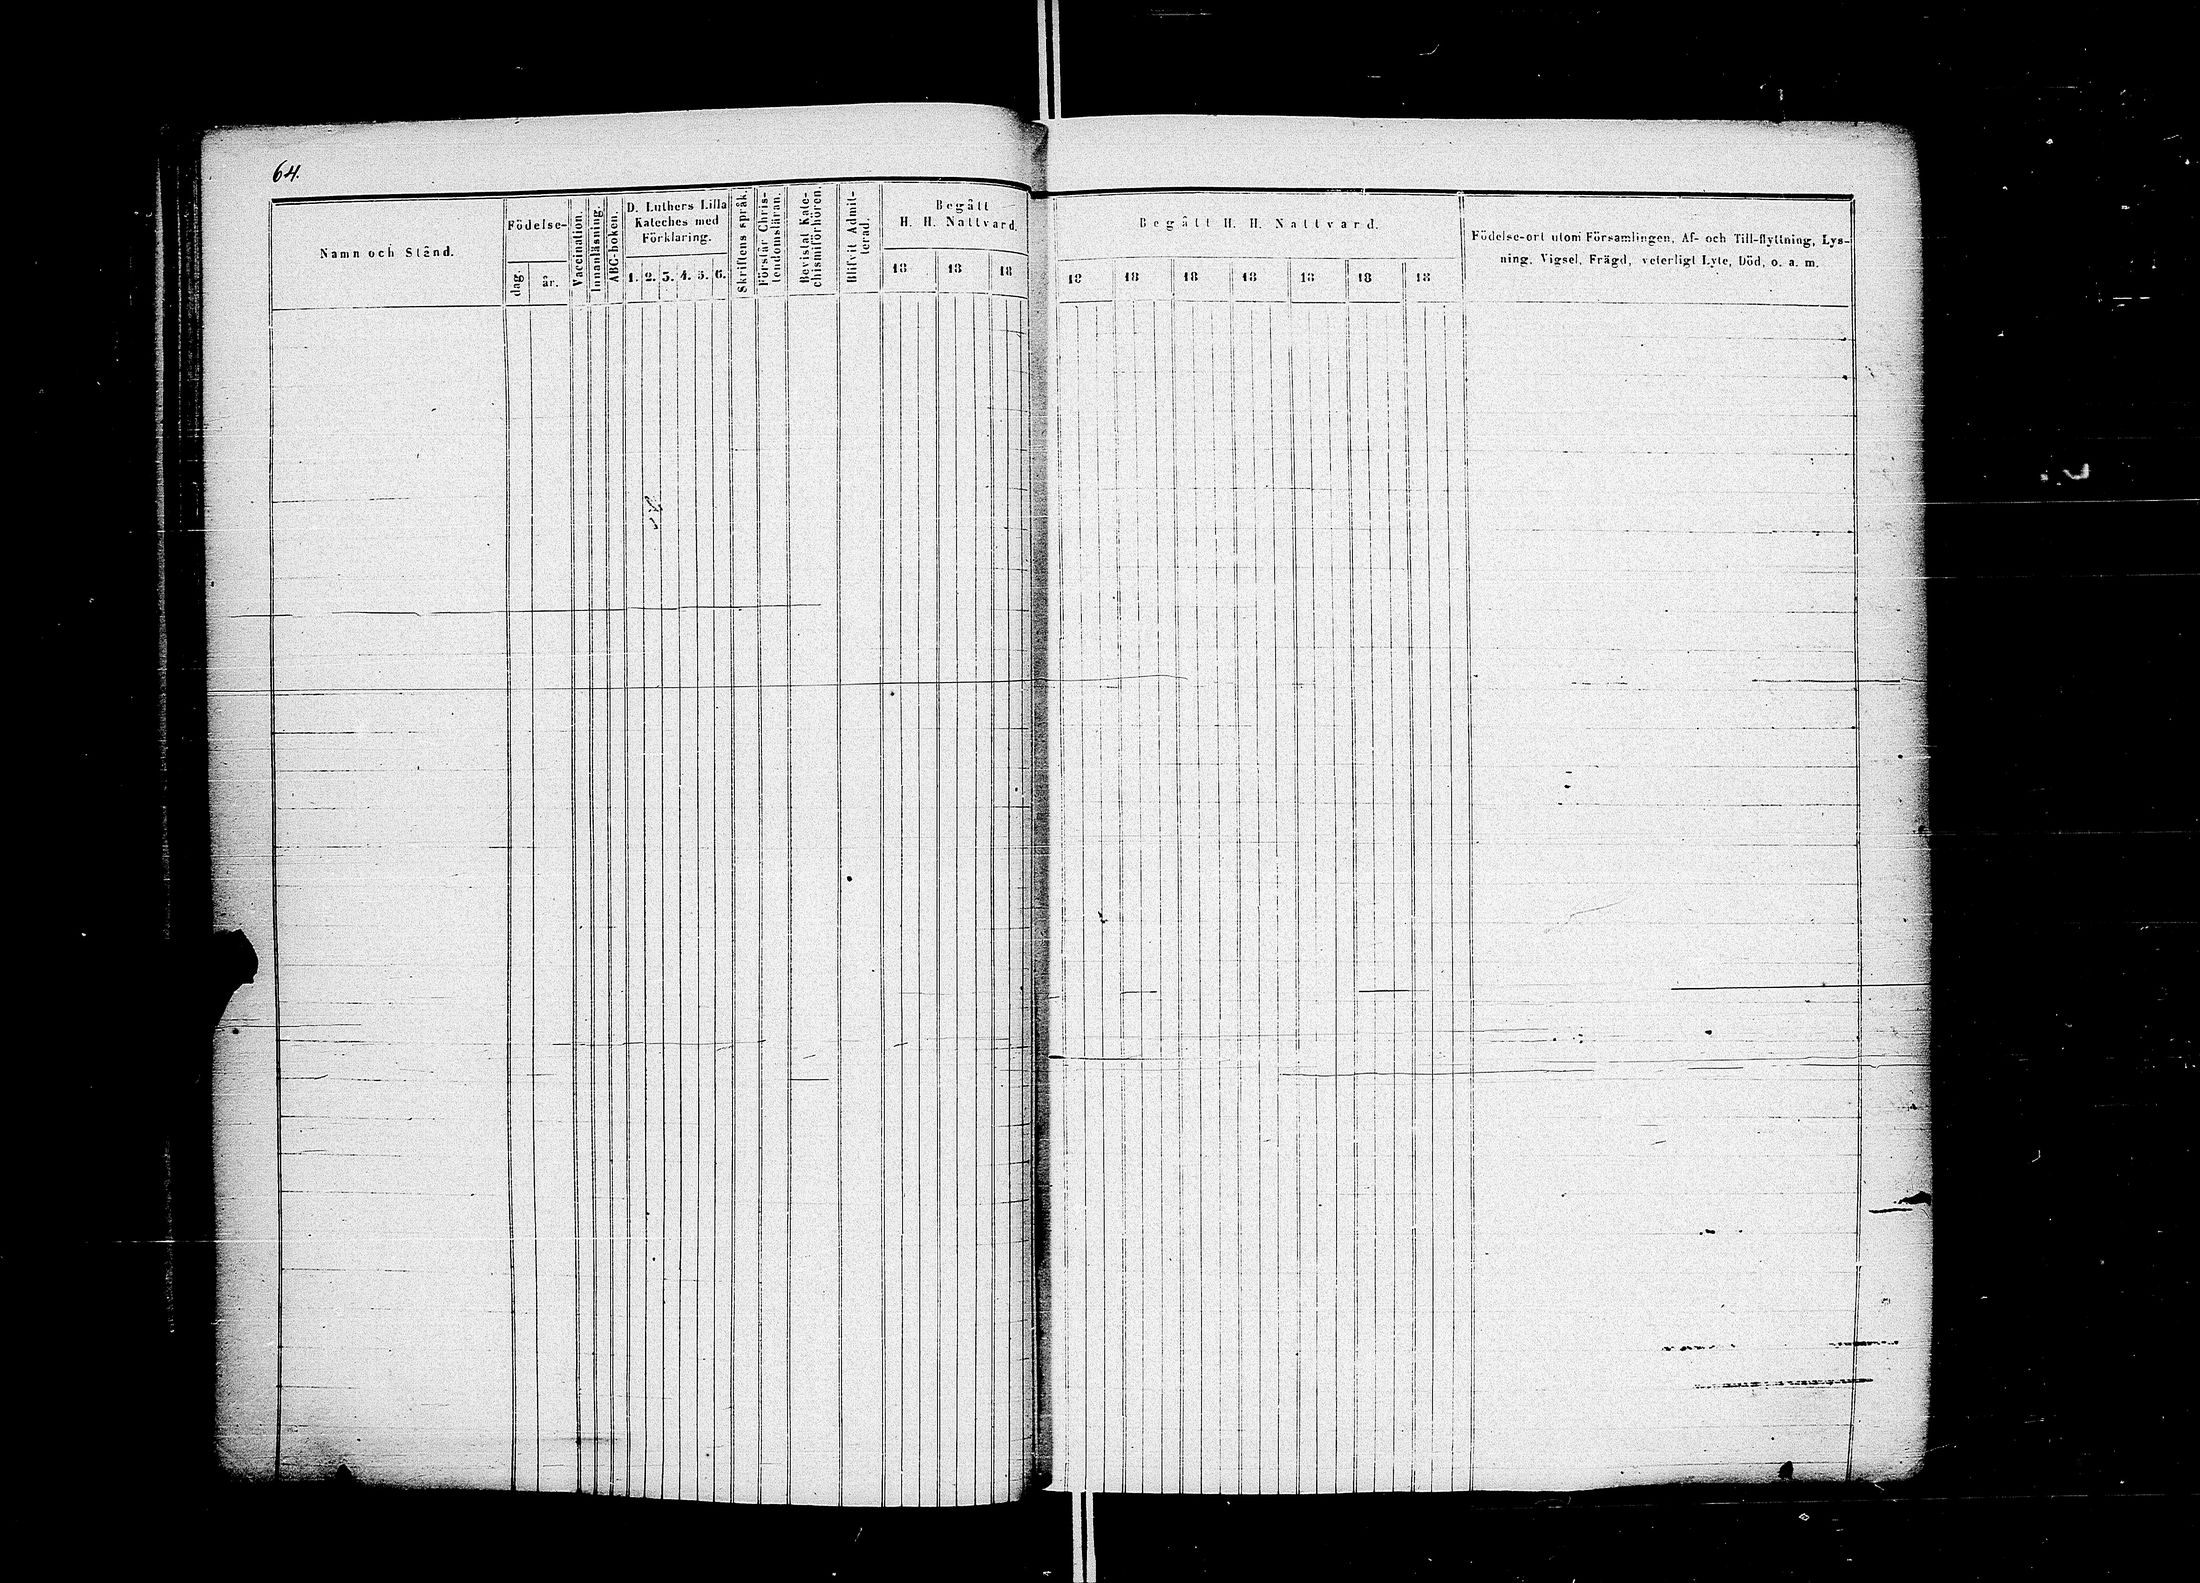 64.
Namn och Stånd.
Födelse-
dag.
år.
Vaccination.
Innanläsning.
ABC-boken.
D. Luthers Lilla
Kateches med
Förklaring.
1. 2. 3. 4. 5. 6.
Skriftens språk.
Förstår Chris-
tendomsläran.
Bevistat Kate-
chismiförhören.
Blifvit Admit-
terad.
Begått
H. H. Nattvard.
18 18 18
Begått H. H. Nattvard.
18 18 18 18 18 18 18
Födelse-ort utom Församlingen, Af- och Till-flyttning, Lys-
ning, Vigsel, Frägd, veterligt Lyte, Död, o. a. m.